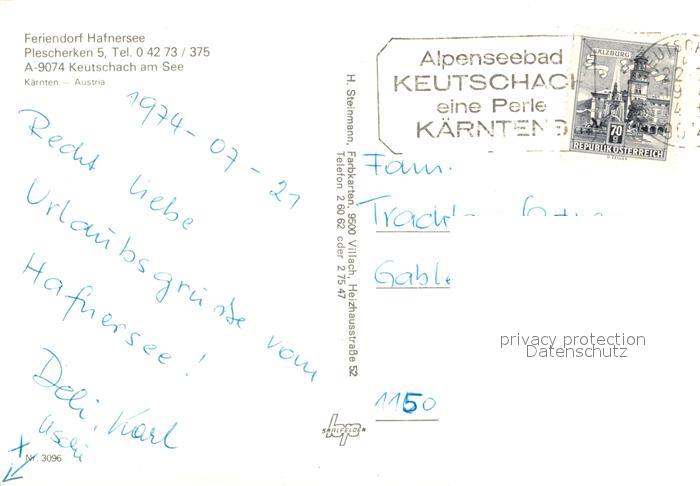 Feriendorf Hafnersee
Plescherken 5, Tel. 0 42 73 / 375
A-9074 Keutschach am See
Kärnten — Austria
1974-07-21
Recht liebe
Urlaubsgrüsse vom
Hafnersee!
Deli, Karl
Uschi
Nr. 3096
H. Steinmann, Farbkarten, 9500 Villach, Heizhausstraße 52
Telefon 2 60 62 oder 2 75 47
SAALFELDEN
Alpenseebad
KEUTSCHACH
eine Perle
KÄRNTENS
SALZBURG
70
REPUBLIK ÖSTERREICH
Fam.
Gabl
1150
privacy protection
Datenschutz